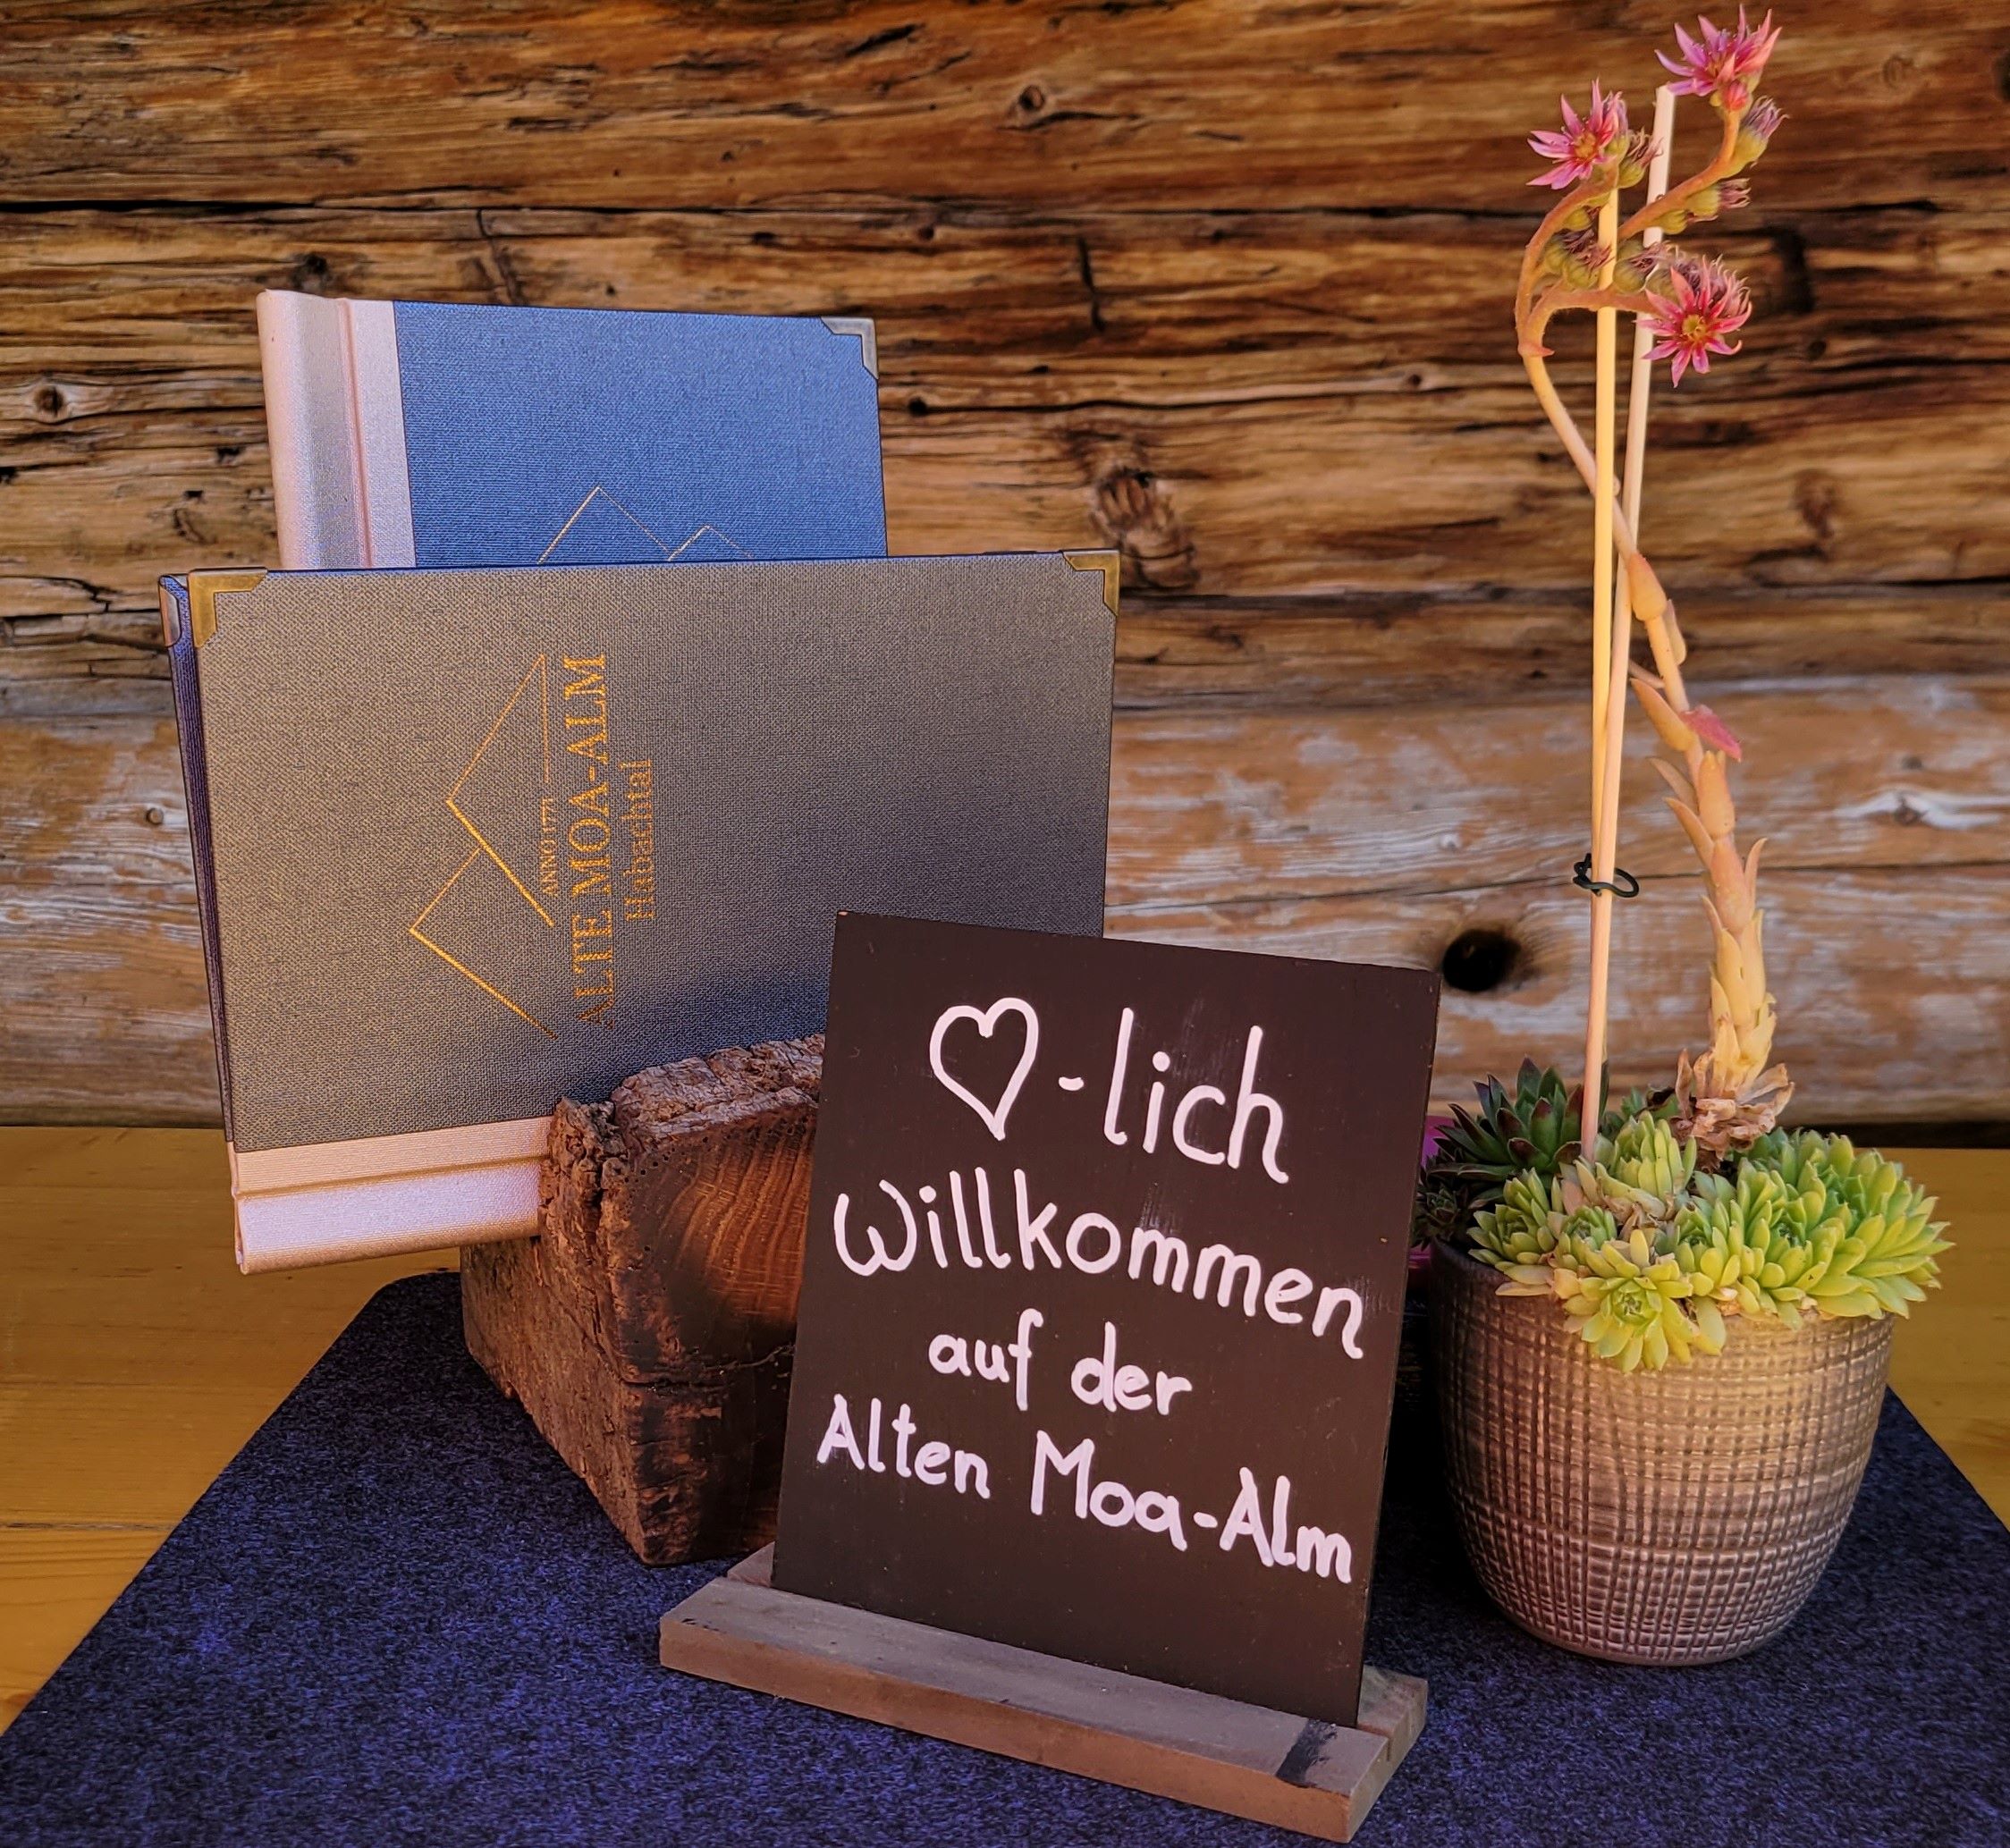 ANNO 1771
ALTE MOA-ALM
Habachtal
♡-lich
Willkommen
auf der
Alten Moa-Alm